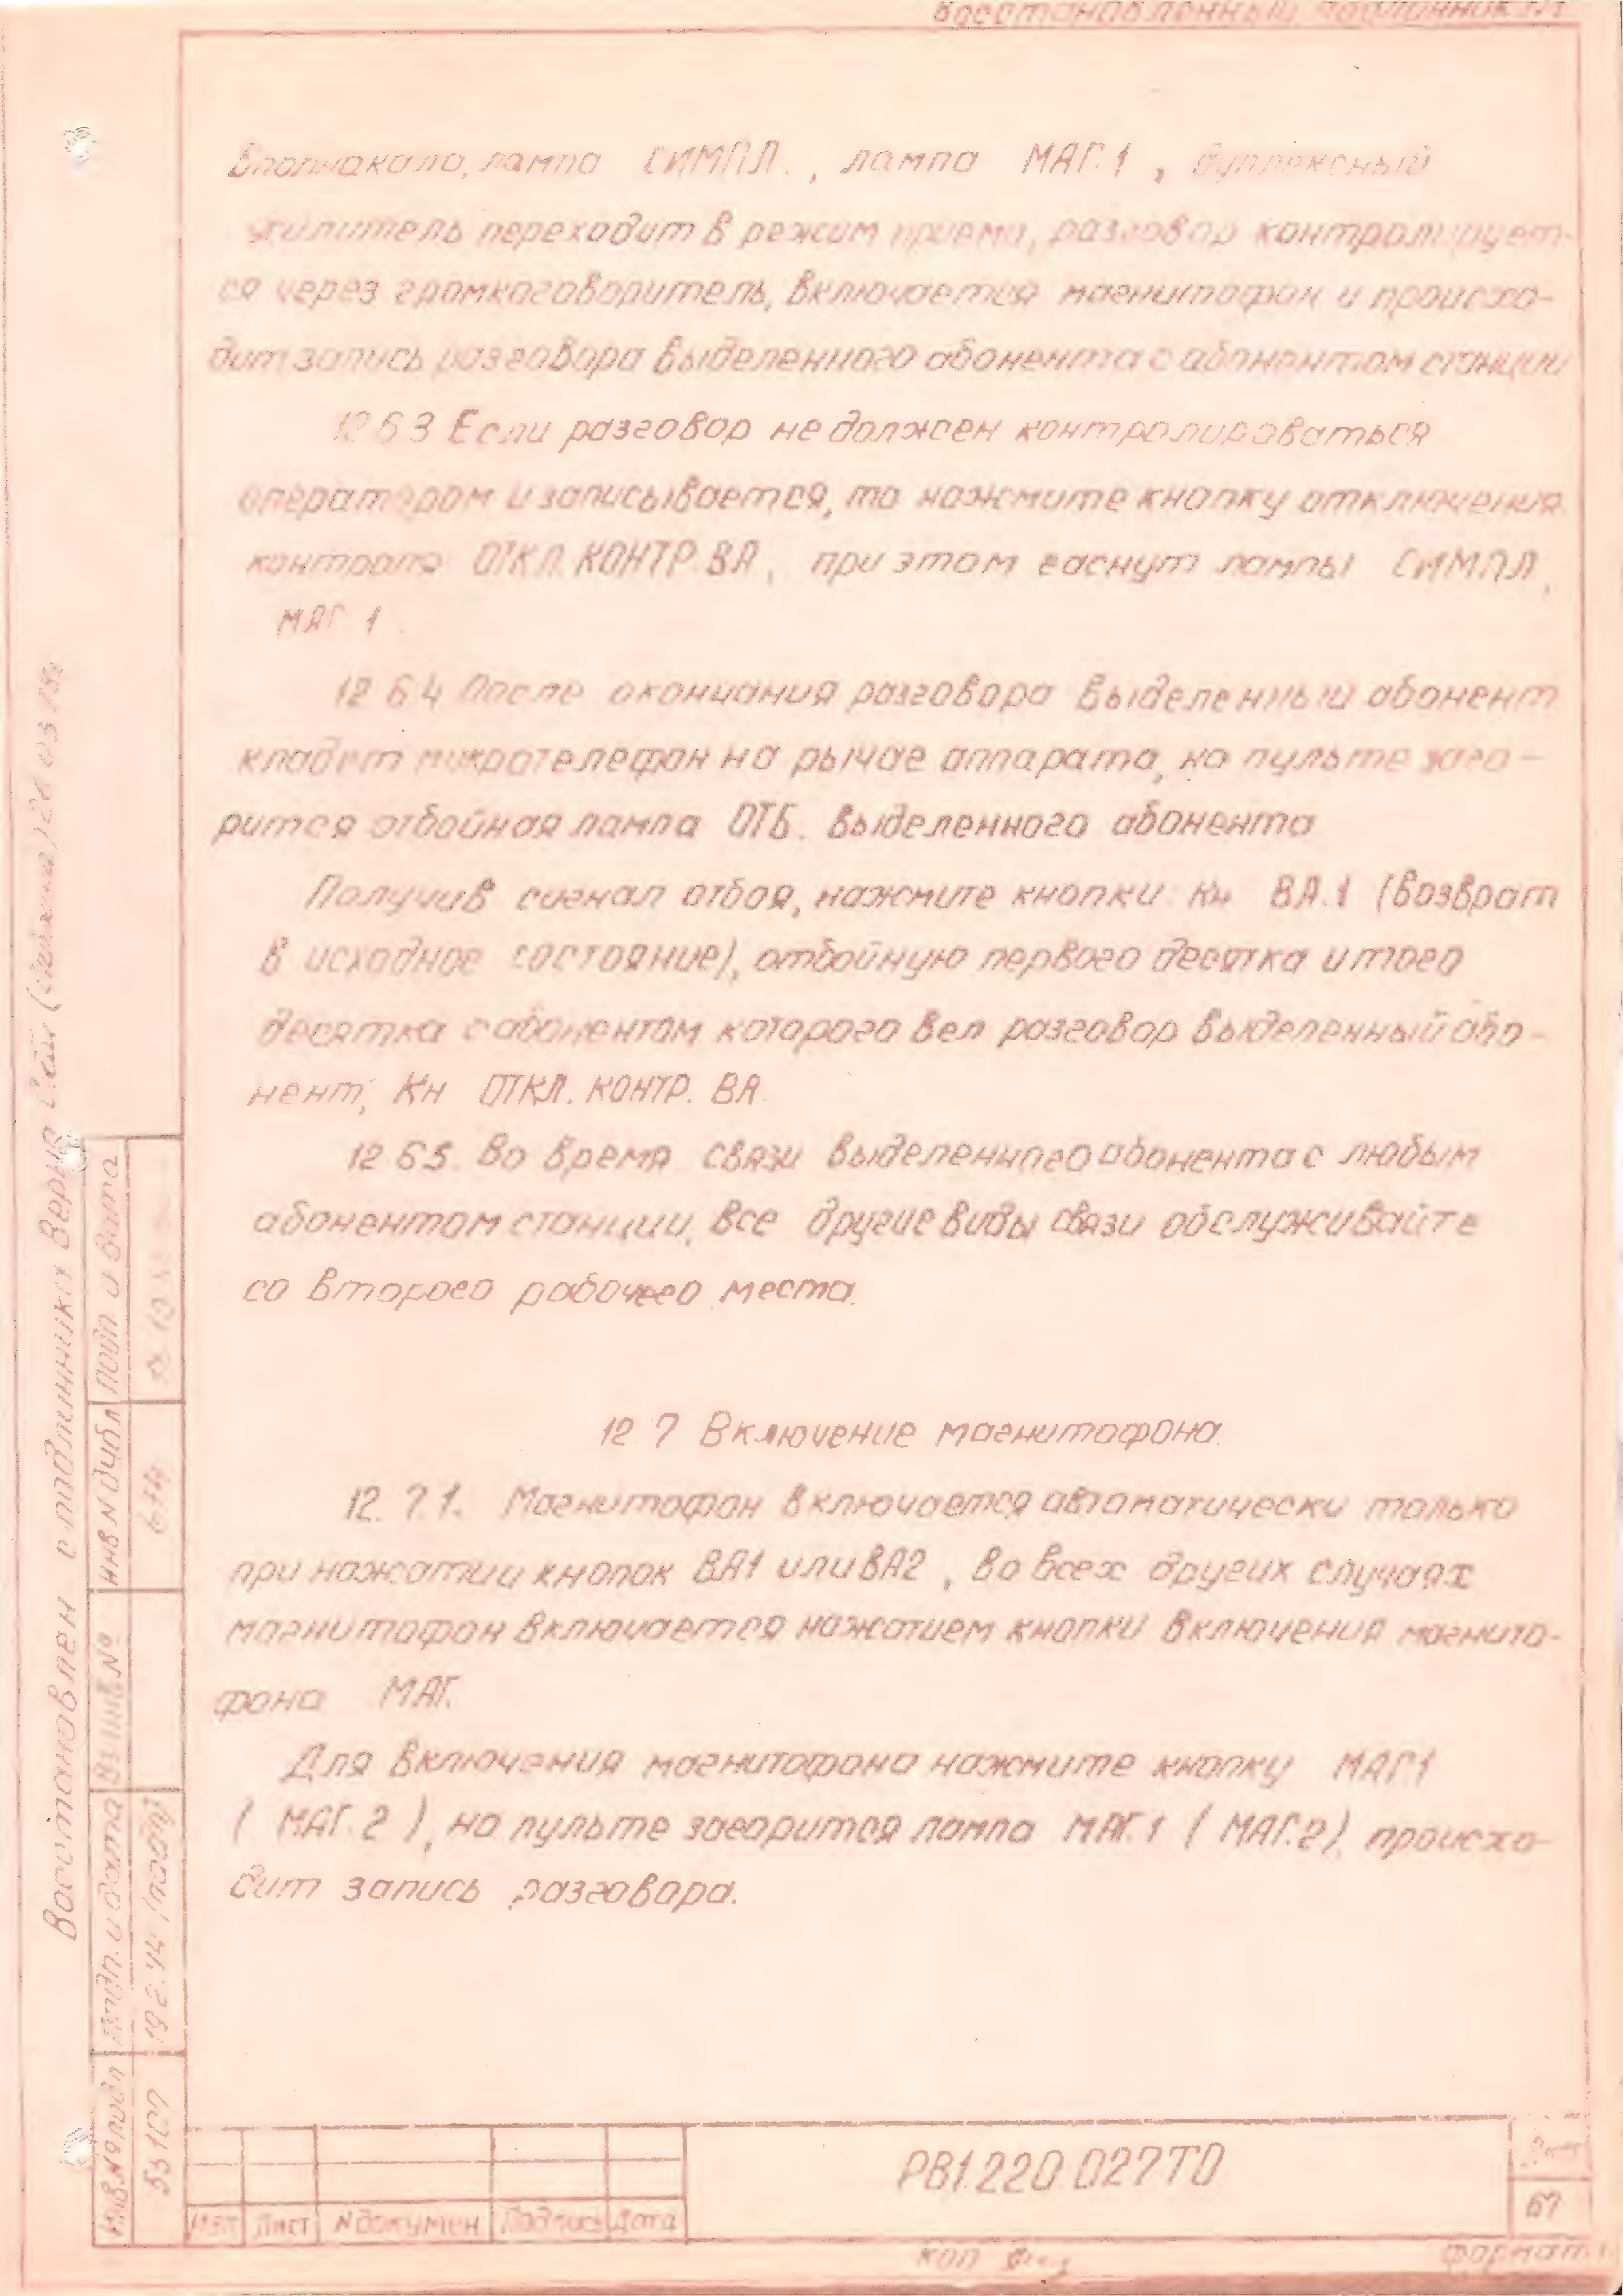 Восстановленный подлинник №1
вполнакала, лампа СИМПЛ., лампа МАГ.1, дуплексный
усилитель переходит в режим приема, разговор контролирует-
ся через громкоговоритель, включается магнитофон и происхо-
дит запись разговора выделенного абонента с абонентом станции
12.6.3 Если разговор не должен контролироваться
оператором и записывается, то нажмите кнопку отключения
контроля ОТКЛ.КОНТР.ВА, при этом гаснут лампы СИМПЛ,
МАГ.1.
12.6.4 После окончания разговора выделенный абонент
кладет микротелефон на рычаг аппарата, на пульте заго-
рится отбойная лампа ОТБ. выделенного абонента
Получив сигнал отбоя, нажмите кнопки: Кн ВА.1 (возврат
в исходное состояние), отбойную первого десятка и того
десятка с абонентом которого вел разговор выделенный або-
нент, Кн ОТКЛ. КОНТР. ВА
12.6.5. Во время связи выделенного абонента с любым
абонентом станции, все другие виды связи обслуживайте
со второго рабочего места.
12.7 Включение магнитофона.
12.7.1. Магнитофон включается автоматически только
при нажатии кнопок ВА1 или ВА2, во всех других случаях
магнитофон включается нажатием кнопки включения магнито-
фона МАГ.
Для включения магнитофона нажмите кнопку МАГ.1
(МАГ.2), на пульте загорится лампа МАГ.1 (МАГ.2), происхо-
дит запись разговора.
Восстановлен с подлинника Верно
Подп. и дата
Инв N дубл
Вз.инв.№
Подп. и дата
Инв.№ подп
53107
РВ1.220.027ТО
Лист
67
Изм Лист N докумен Подпись Дата
коп
формат